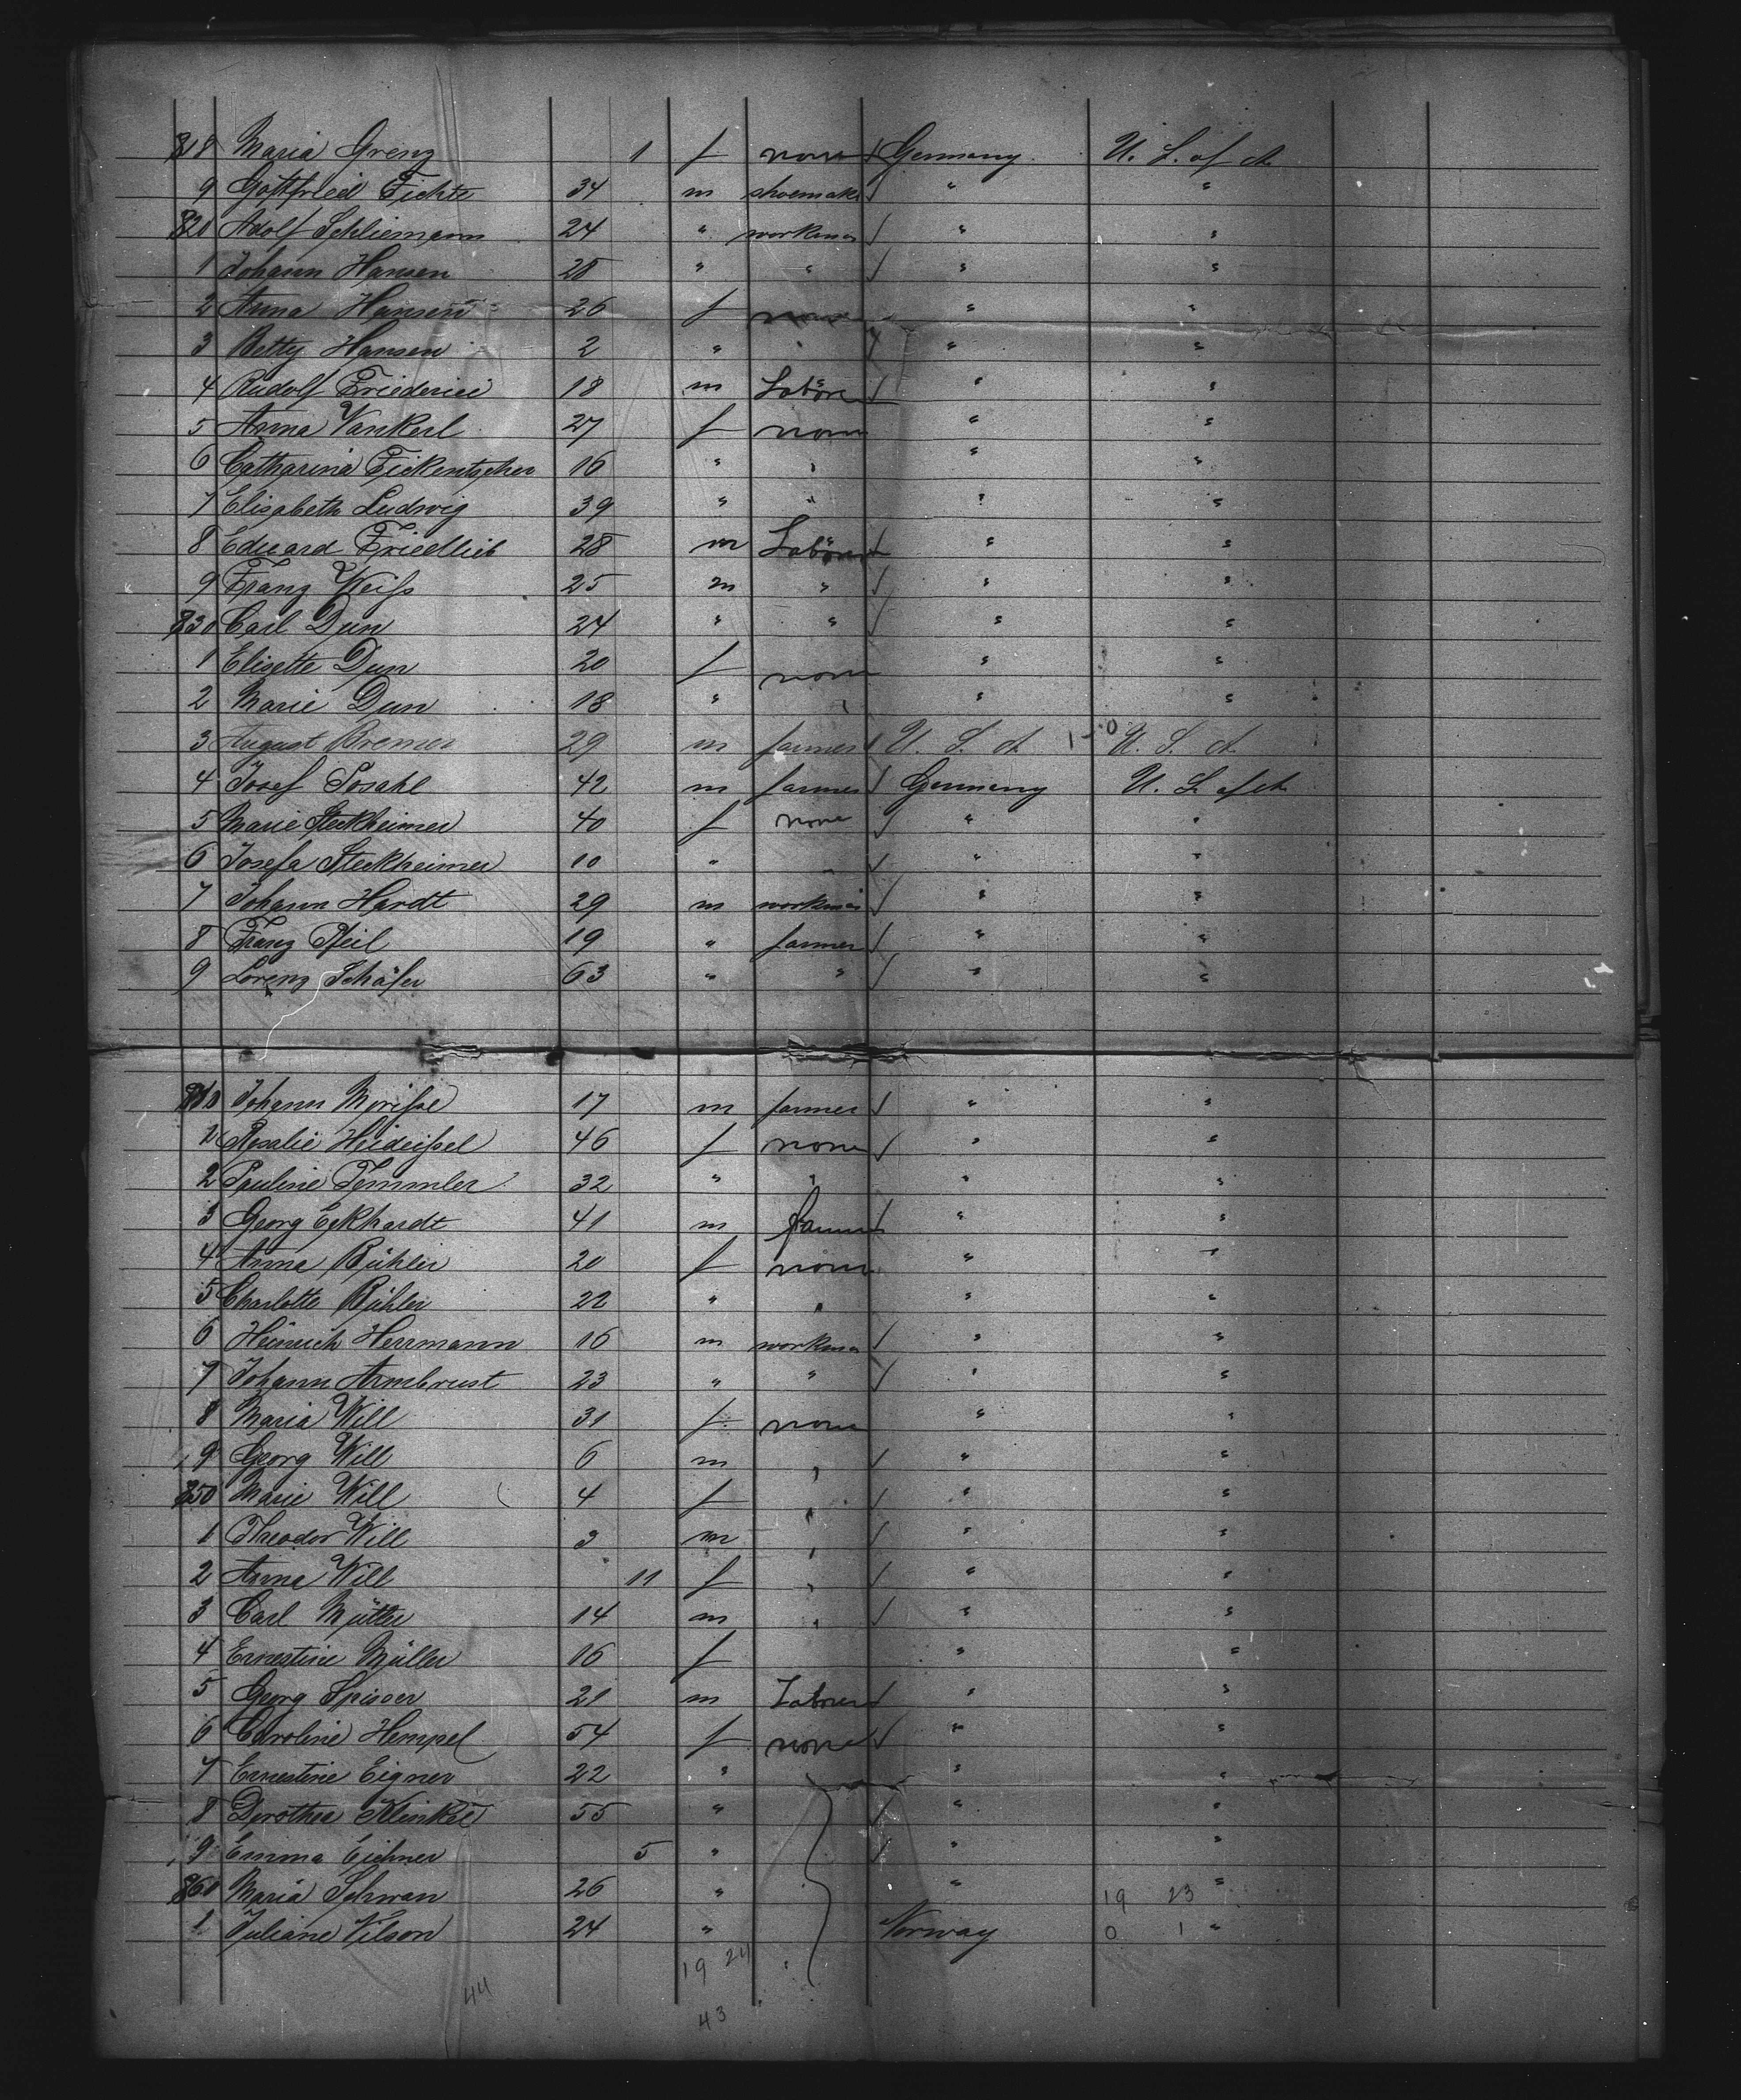 818 Maria Grenz 1 f none Germany U. S. of A.
9 Gottfried Fichte 34 m shoemaker " "
820 Adolf Schliemann 24 " workman " "
1 Johann Hansen 28 " " " "
2 Anna Hansen 26 f none " "
3 Betty Hansen 2 " " " "
4 Rudolf Friederici 18 m Laborer " "
5 Anna Vankerl 27 f none " "
6 Catharina Fickentscher 16 " " " "
7 Elisabeth Ludwig 39 " " " "
8 Eduard Friedlieb 28 m Laborer " "
9 Franz Weiß 25 m " " "
830 Carl Dun 24 " " " "
1 Elisette Dun 20 f none " "
2 Marie Dun 18 " " " "
3 August Bremer 29 m farmer U. S. A. U. S. A.
4 Josef Posahl 42 m farmer Germany U. S. of A.
5 Marie Steckheimer 40 f none " "
6 Josefa Steckheimer 10 " " " "
7 Johann Hardt 29 m workman " "
8 Franz Pfeil 19 " farmer " "
9 Lorenz Schäfer 63 " " " "
840 Johann Morisse 17 m farmer " "
1 Rosalie 46 f none " "
2 Pauline Temmler 32 " " " "
3 Georg Eckhardt 41 m farmer " "
4 Anna Bühler 20 f none " "
5 Charlotte Bühler 22 " " " "
6 Heinrich Herrmann 16 m workman " "
7 Johann Armbrust 23 " " " "
8 Maria Will 31 f none " "
9 Georg Will 6 m " " "
850 Marie Will 4 f " " "
1 Theodor Will 3 m " " "
2 Anna Will 11 f " " "
3 Carl Müller 14 m " " "
4 Ernestine Müller 16 f " "
5 Georg Spisser 21 m Laborer " "
6 Caroline Hempel 54 f none " "
7 Ernestine Eigner 22 " " "
8 Dorothea Klinkel 55 " " "
9 Emma Eichner 5 " "  "
860 Maria Schwan 26 " " "
19 23
1 Juliane Nilson 24 " Norway "
0 1
19 24
44
43